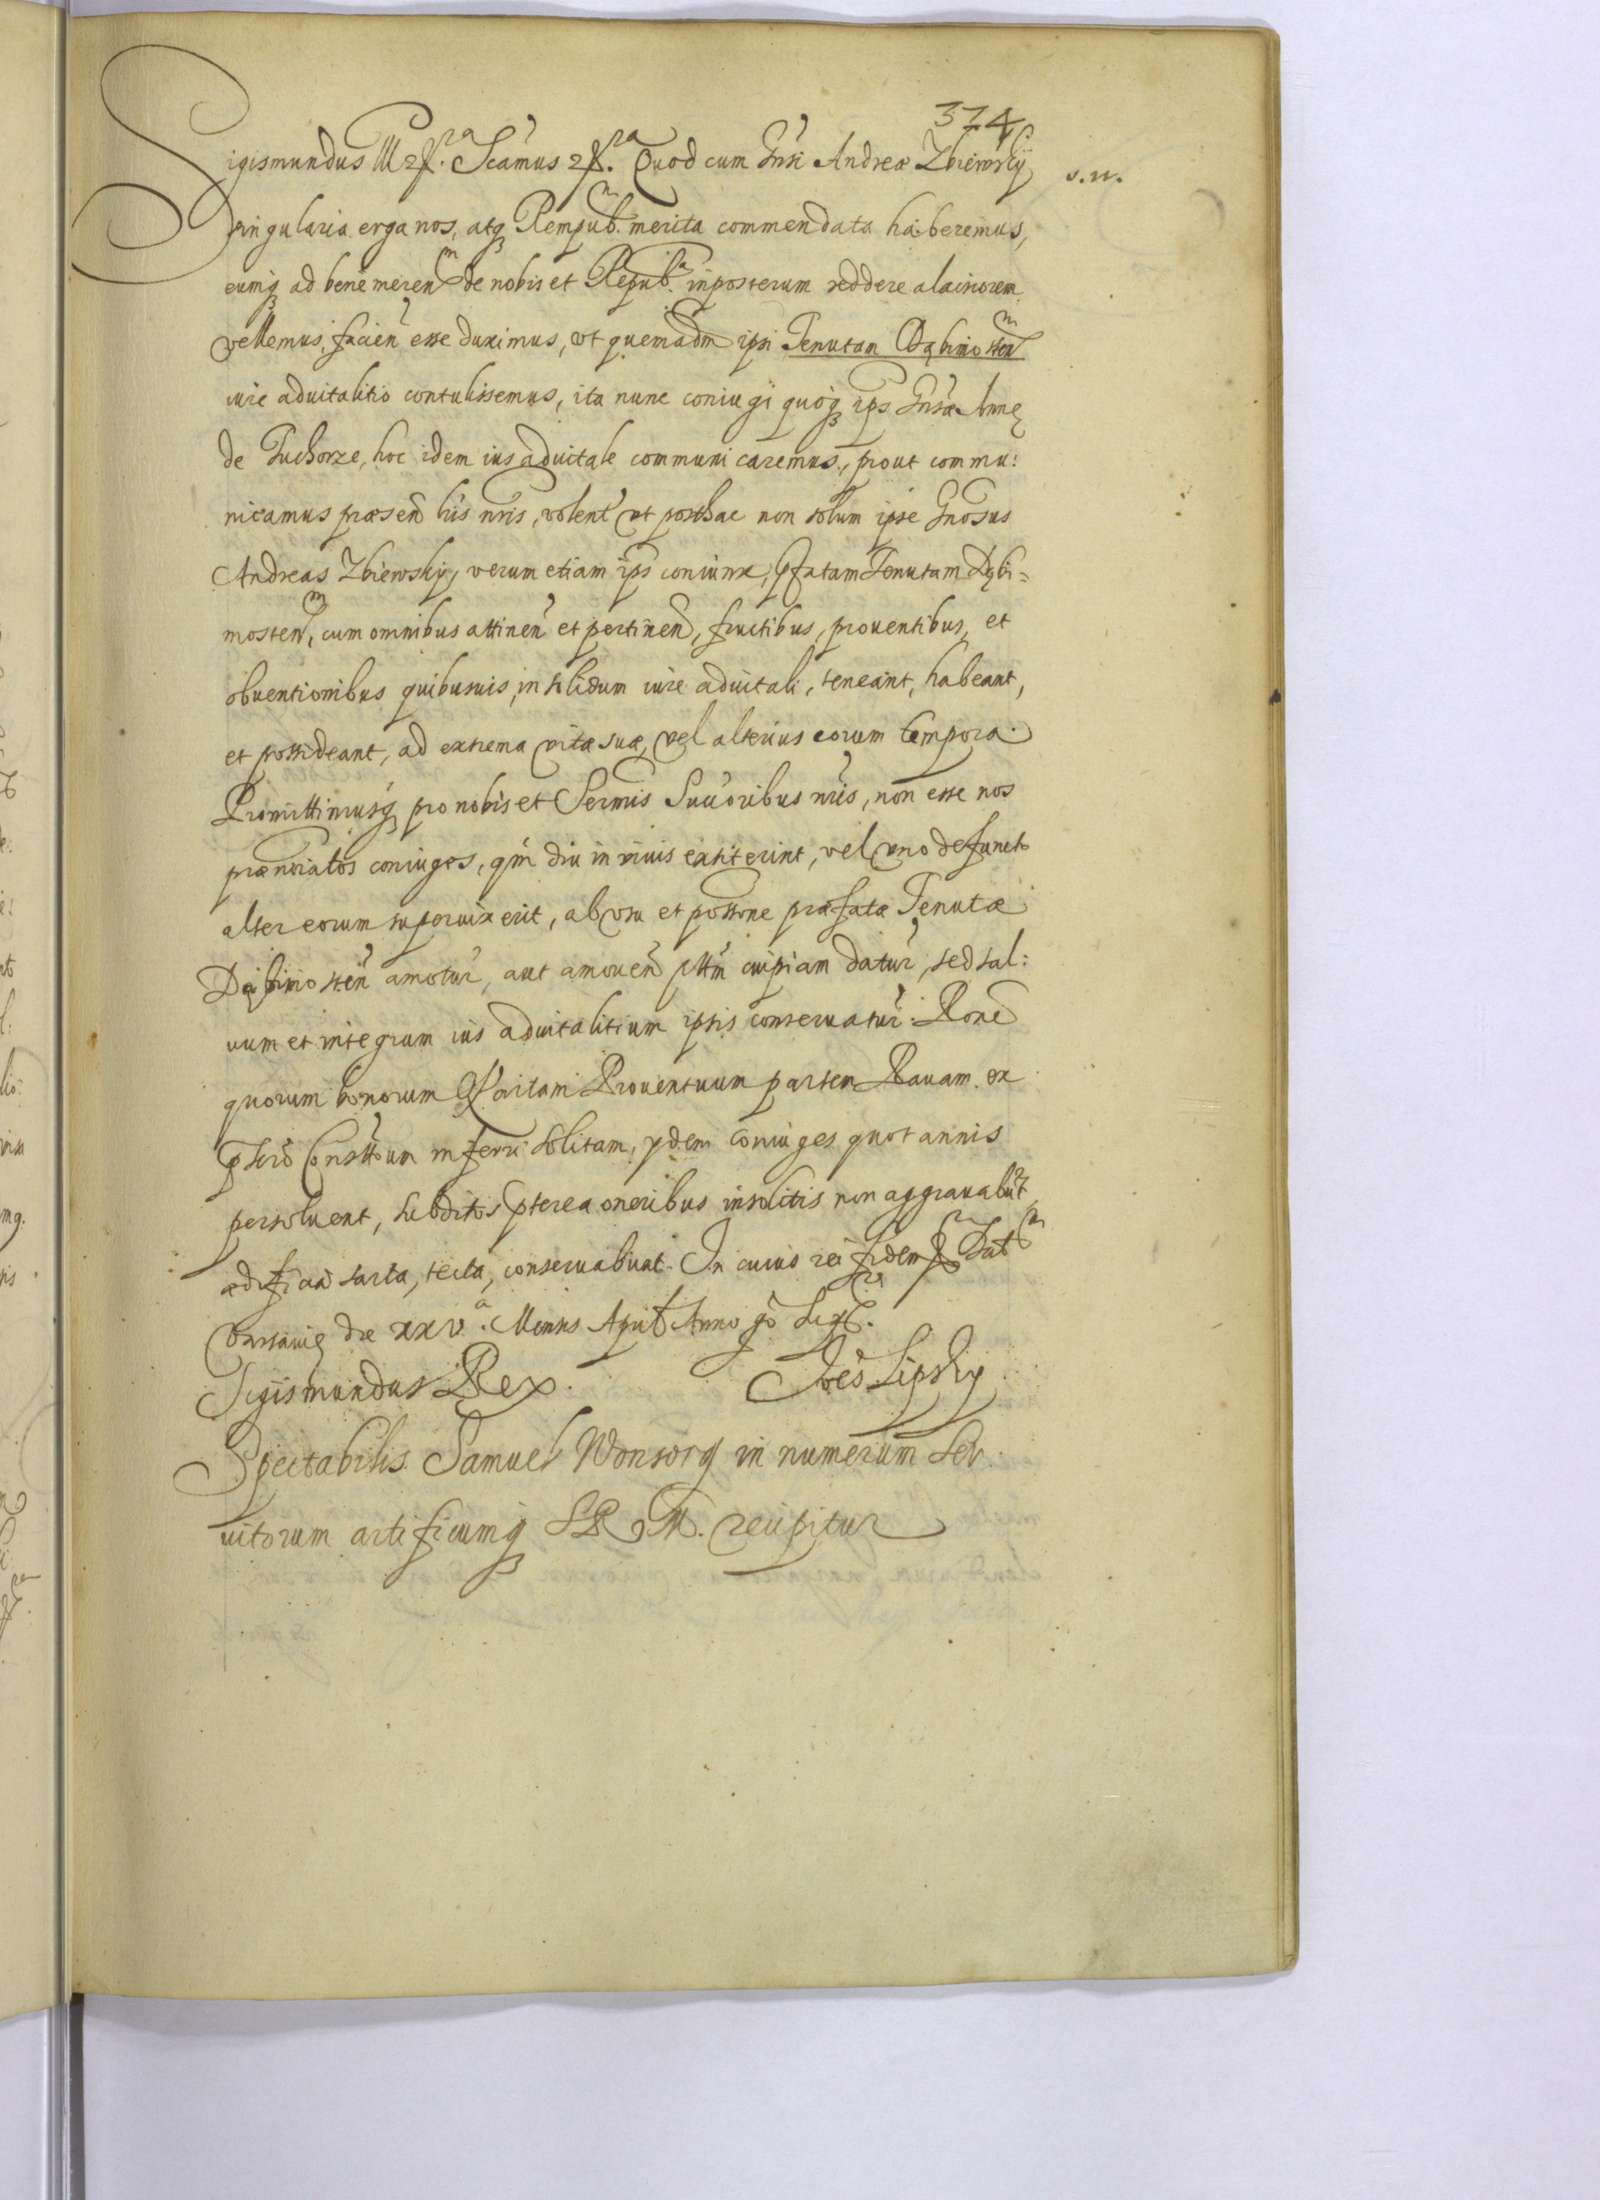 374
Sigismundus III etc.ra Scamus etc.ra Quod cum Gnsi Andreæ Zbiewsky s.n.
singularia erga nos, atq Rempub.m merita commendata haberemus,
eumq ad bene meren de nobis et Repub.a inposterum reddere alacriorem
vellemus, facien esse duximus, vt quemadm ipsi Tenutam Dąbimosten
iure aduitalitio contulissemus, ita nunc coniugi quoq ips Gnsæ Annę
de Tuchorze, hoc idem ius aduitale communicaremus, prout commu:
nicamus præsen lris nris, volent vt posthac non solum ipse Gnosus
Andreas Zbiewsky, verum etiam ips coniunx, pfatam Tenutam Dębi=
mosten, cum omnibus attinen et pertinen, fructibus, prouentibus, et
obuentionibus quibusuis, in solidum iure aduitali, teneant, habeant,
et possideant, ad extrema vitæ suæ, vel alterius eorum tempora.
Promittimusq pro nobis et Sermis Succoribus nris, non esse nos
prænoiatos coniuges, qm diu in viuis extiterint, vel vno defuncto
alter eorum superuixerit, ab vsu et possone præfatæ Tenutæ
Dąbimosten amotur, aut amouen pttm cuipiam datur, sed sal:
uum et integrum ius aduitalitium ipsis conseruatur: Rone
quorum bonorum Quartam Prouentuum partem Rauam ex
pscro Consttoum inferri solitam, ydem coniuges quotannis
persoluent, subditos pterea oneribus insolitis non aggrauabut,
ædificia sarta, tecta, conseruabunt. In cuius rei fidem Dat
Varsauię die xxv.a Mensis April Anno
Sigismundus Rex. Joes Lipsky
Spectabilis Samuel Wonsorg in numerum Ser
uitorum artificumq S R M. recipitur